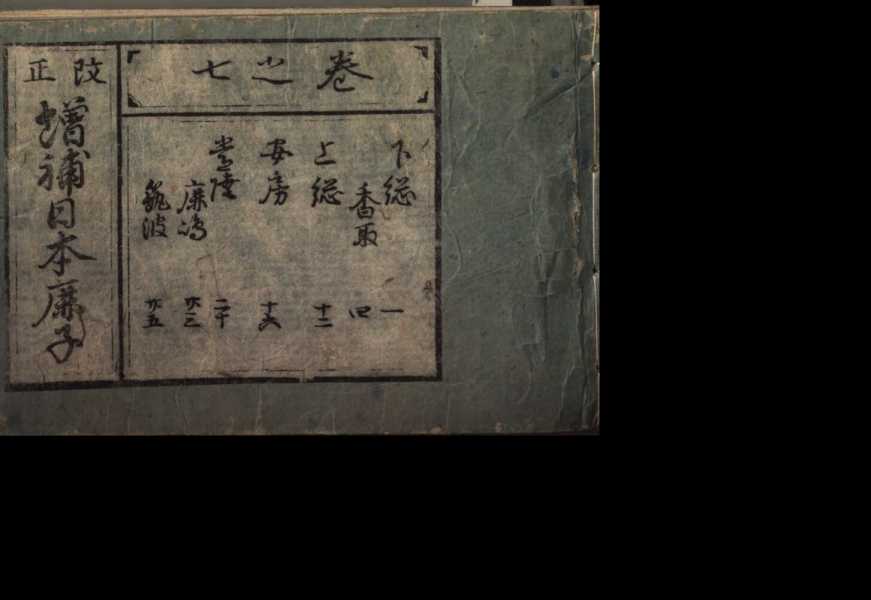 巻之七
下総 一
香取 四
上総 十二
安房 十六
常陸 二十
鹿嶋 廿三
筑波 廿五
改正
増補日本鹿子